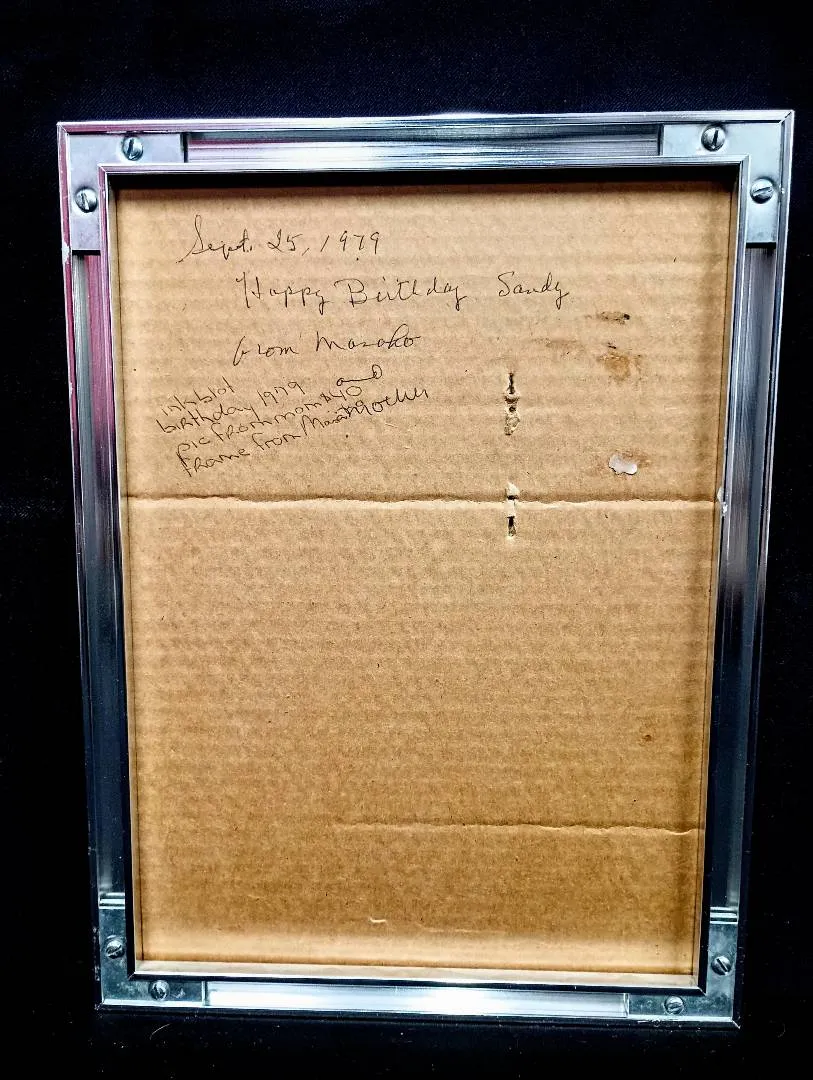 Sept. 25, 1979
Happy Birthday Sandy
from Masako
and
Mother
inkblot
birthday 1979
pic from mom $40
frame from Masako